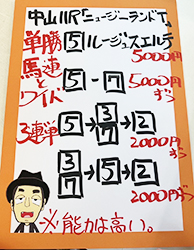 中山11R「ニュージーランドT」
単勝 5 ルージュスエルテ
5000円
馬連とワイド 5-7 5000円ずつ
3連単 5→3/7→2
2000円ずつ
3/7→5→2
2000円ずつ
※能力は高い。